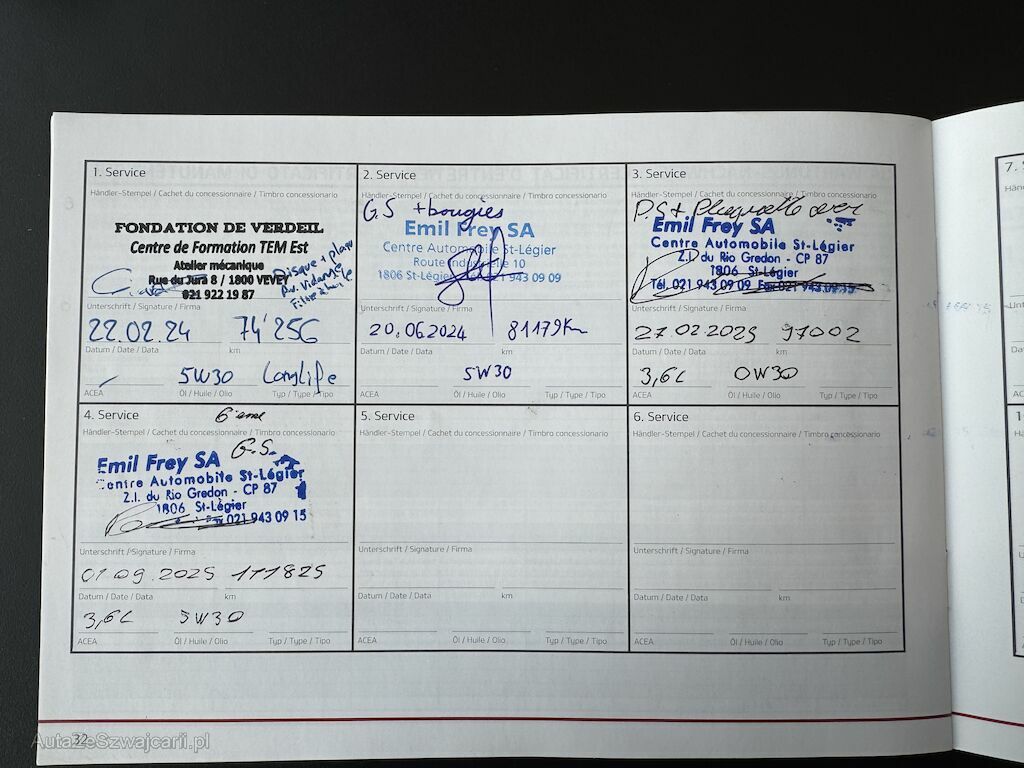 1. Service
Händler-Stempel / Cachet du concessionnaire / Timbro concessionario
FONDATION DE VERDEIL
Centre de Formation TEM Est
Atelier mécanique
Rue du Jura 8 / 1800 VEVEY
021 922 19 87
Disque + plaqu
Av. Vidange
Filtre à huile
Unterschrift / Signature / Firma
22.02.24 74'256
Datum / Date / Data km
5W30 Longlife
ACEA Öl / Huile / Olio Typ / Type / Tipo
2. Service
Händler-Stempel / Cachet du concessionnaire / Timbro concessionario
G.S + bougies
Emil Frey SA
Centre Automobile St-Légier
Route Industrielle 10
1806 St-Légier 021 943 09 09
Unterschrift / Signature / Firma
20.06.2024 81179Km
Datum / Date / Data km
5W30
ACEA Öl / Huile / Olio Typ / Type / Tipo
3. Service
Händler-Stempel / Cachet du concessionnaire / Timbro concessionario
P.S + Plaquette
Emil Frey SA
Centre Automobile St-Légier
Z.I. du Rio Gredon - CP 87
1806 St-Légier
Tél. 021 943 09 09 Fax 021 943 09 15
Unterschrift / Signature / Firma
27.02.2025 97002
Datum / Date / Data km
3,6L 0W30
ACEA Öl / Huile / Olio Typ / Type / Tipo
4. Service
6ième
Händler-Stempel / Cachet du concessionnaire / Timbro concessionario
G.S.
Emil Frey SA
Centre Automobile St-Légier
Z.I. du Rio Gredon - CP 87
1806 St-Légier
Fax 021 943 09 15
Unterschrift / Signature / Firma
01 09.2025 111825
Datum / Date / Data km
3,6L 5W30
ACEA Öl / Huile / Olio Typ / Type / Tipo
5. Service
Händler-Stempel / Cachet du concessionnaire / Timbro concessionario
Unterschrift / Signature / Firma
Datum / Date / Data km
ACEA Öl / Huile / Olio Typ / Type / Tipo
6. Service
Händler-Stempel / Cachet du concessionnaire / Timbro concessionario
Unterschrift / Signature / Firma
Datum / Date / Data km
ACEA Öl / Huile / Olio Typ / Type / Tipo
32
AutaZeSzwajcarii.pl